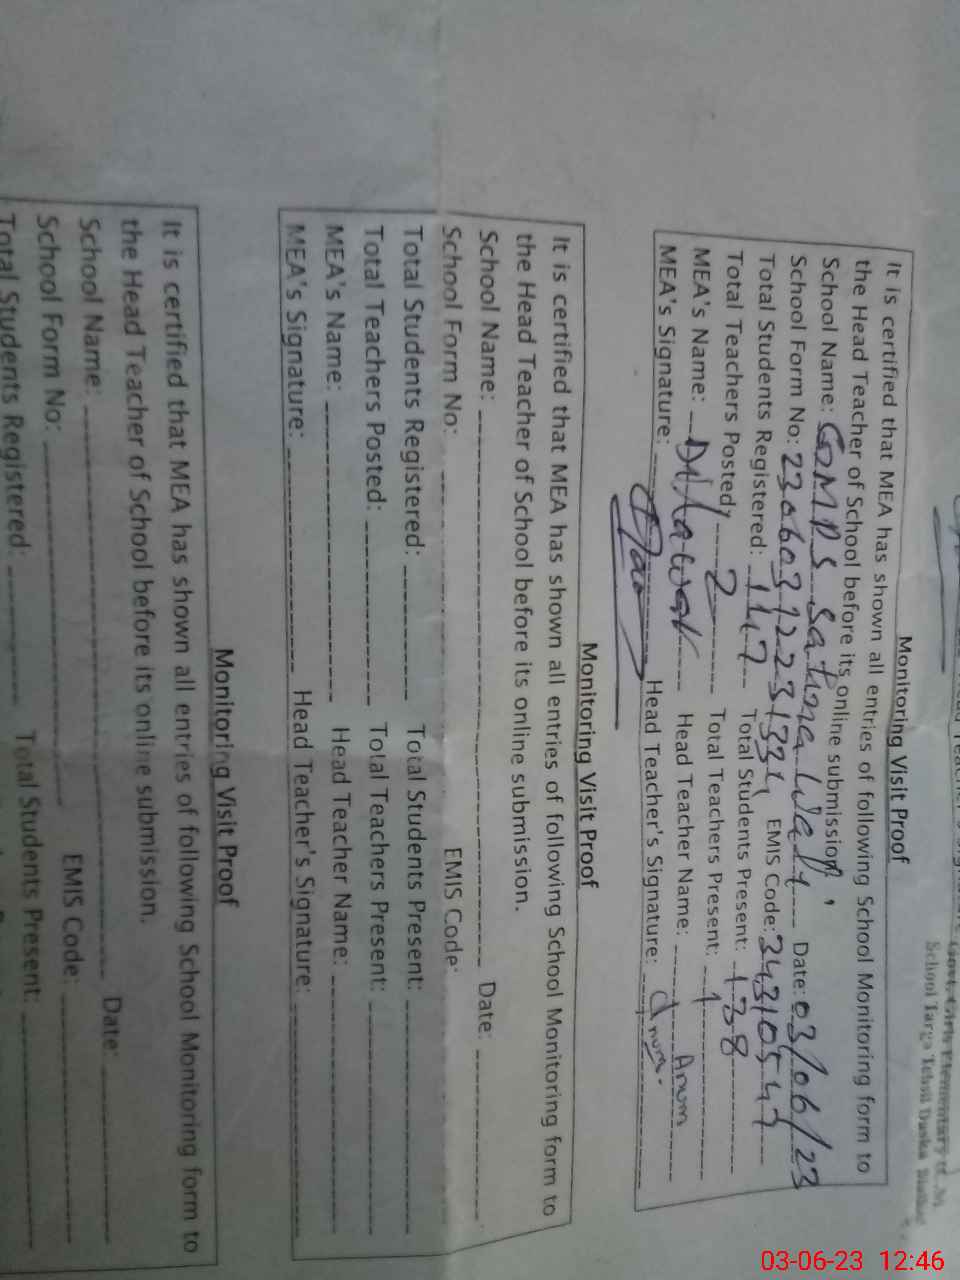 Govt. Girls Elementary
School Targa Tehsil Daska
Monitoring Visit Proof
It is certified that MEA has shown all entries of following School Monitoring form to
the Head Teacher of School before its online submission.
School Name: GGMPS Satna Wali Date: 03/06/23
School Form No: EMIS Code: 34310547
Total Students Registered: 147 Total Students Present: 138
Total Teachers Posted 2 Total Teachers Present: 1
MEA's Name: Head Teacher Name: Anum
MEA's Signature: Head Teacher's Signature: Anum.
Monitoring Visit Proof
It is certified that MEA has shown all entries of following School Monitoring form to
the Head Teacher of School before its online submission.
School Name: Date:
School Form No: EMIS Code:
Total Students Registered: Total Students Present:
Total Teachers Posted: Total Teachers Present:
MEA's Name: Head Teacher Name:
MEA's Signature: Head Teacher's Signature:
Monitoring Visit Proof
It is certified that MEA has shown all entries of following School Monitoring form to
the Head Teacher of School before its online submission.
School Name: Date:
School Form No: EMIS Code:
Total Students Registered: Total Students Present:
03-06-23 12:46